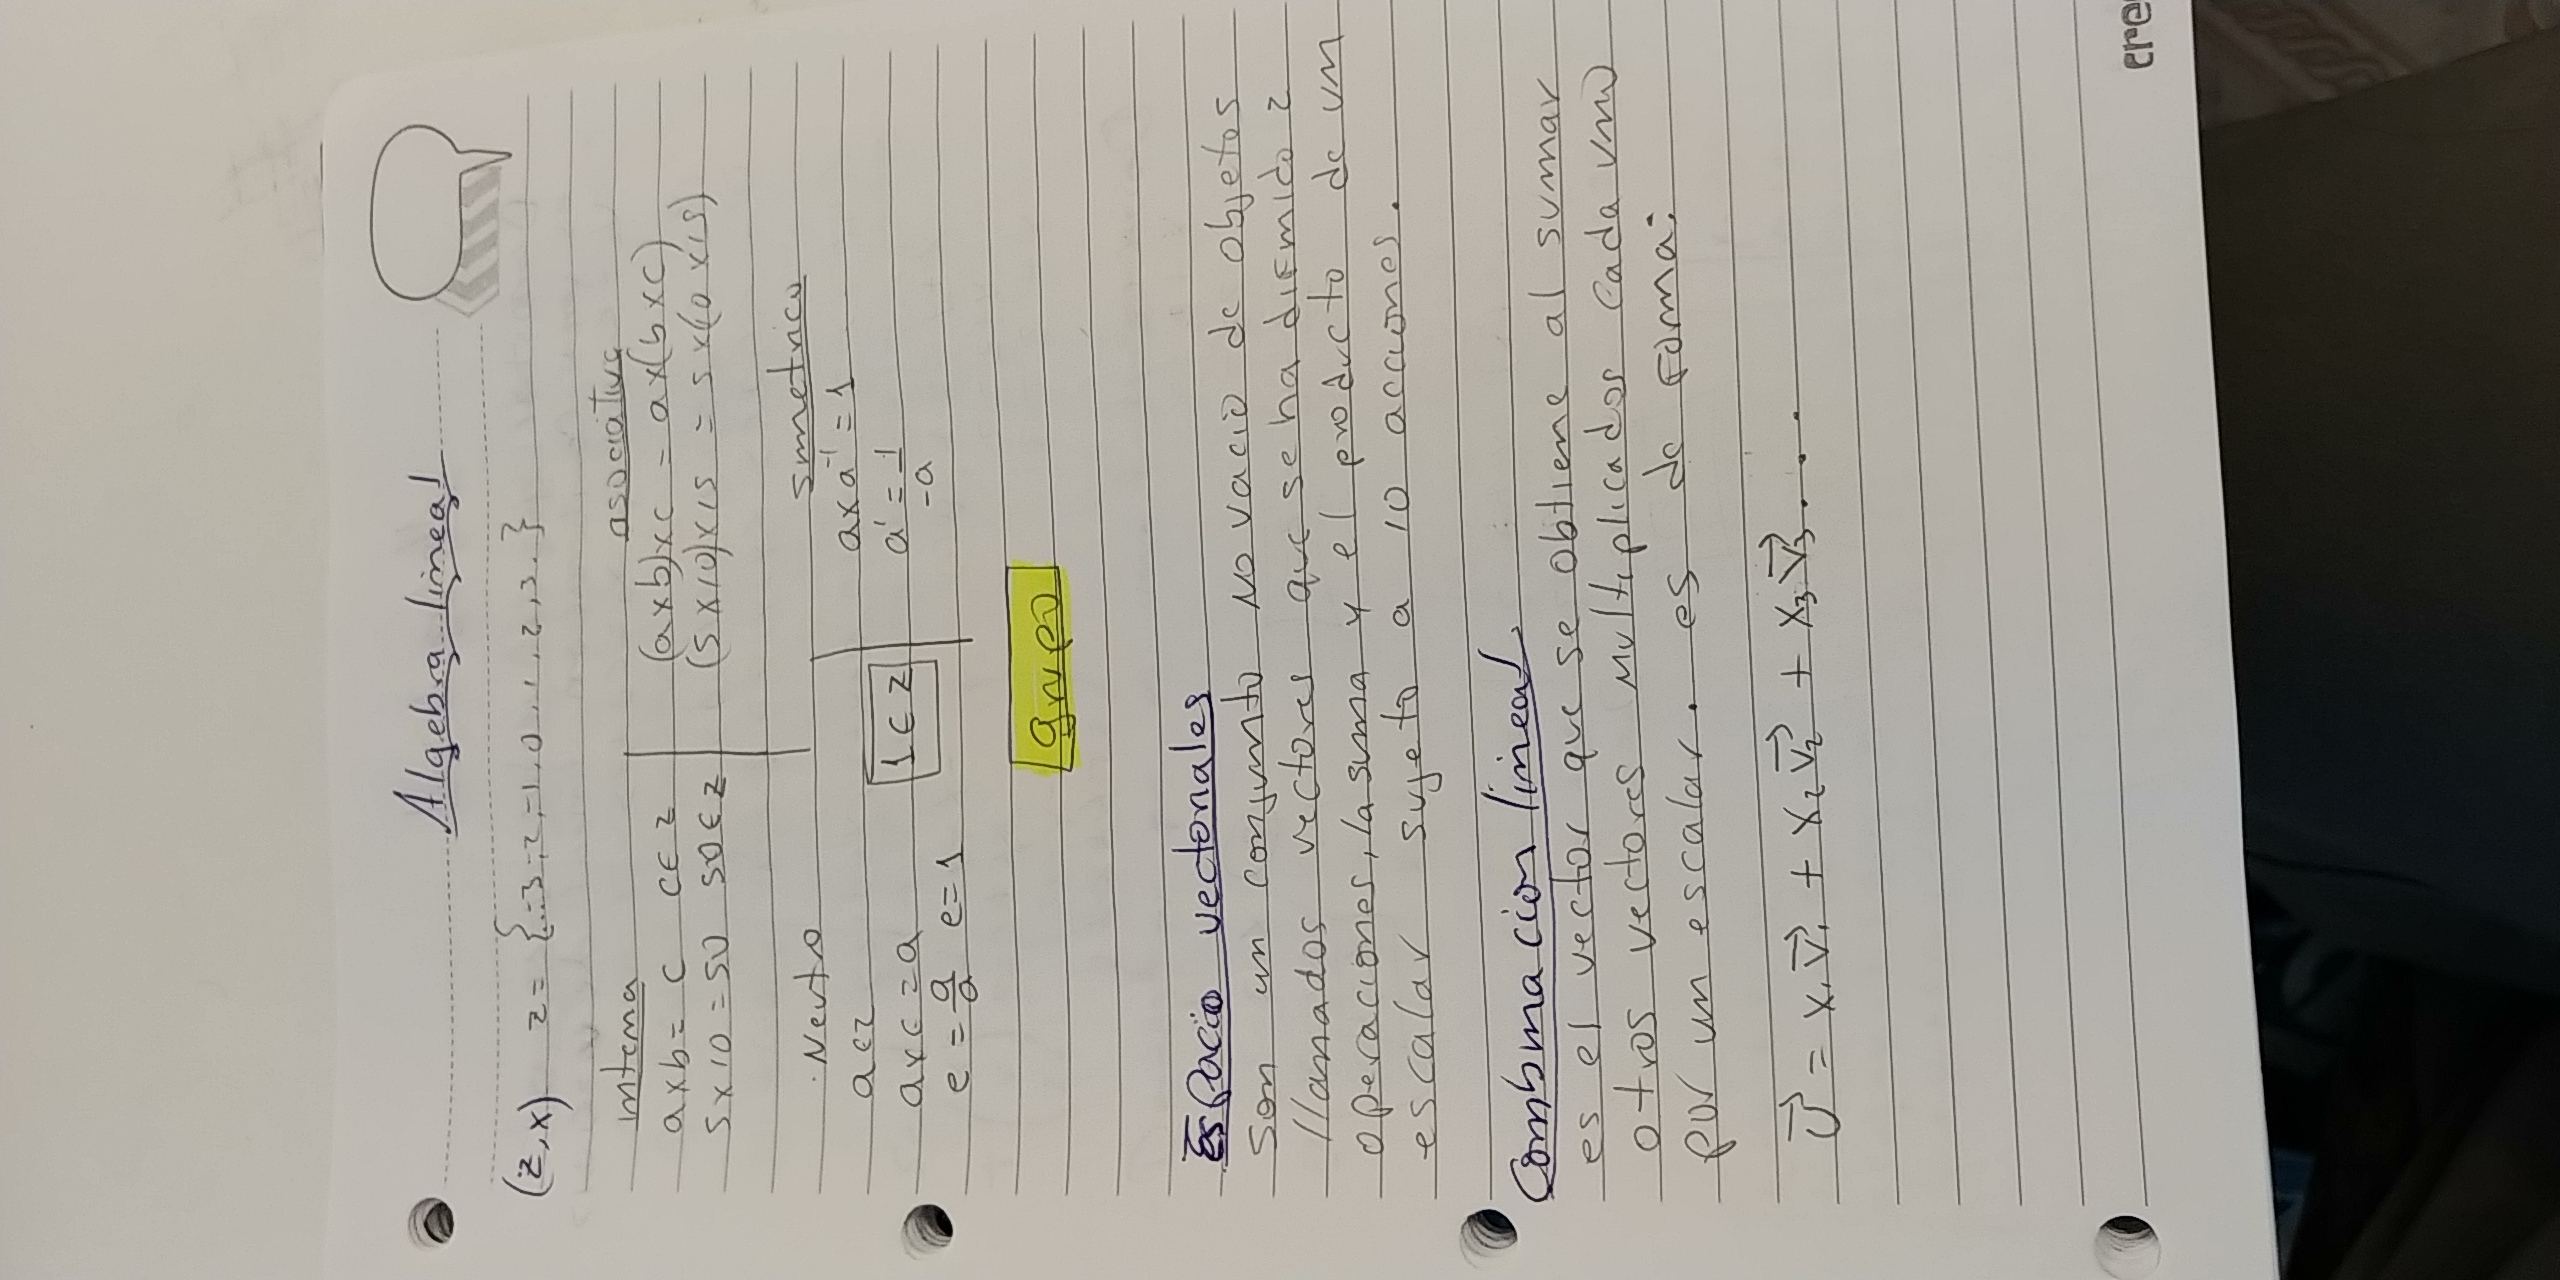 Algebra lineal
(Z,x) Z = {...-3,-2,-1,0,1,2,3.}
interna
asociativa
axb = c c∈Z
(axb)xc = ax(bxc)
5x10 = 50 50∈Z
(5x10)x15 = 5x(10x15)
Neutro
simetrico
a∈Z
axa⁻¹ = 1
axe = a
1∈Z
a' = 1/-a
e = a/a e=1
grupo
Espacio vectoriales
son un conjunto No vacio de objetos
llamados vectores que se ha difinido 2
operaciones, la suma y el producto de un
escalar sujeto a 10 acciones.
Combinacion lineal
es el vector que se obtiene al sumar
otros vectores multiplicados cada uno
por un escalar. es de forma:
U⃗ = x₁V⃗₁ + x₂V⃗₂ + x₃V⃗₃...
cre